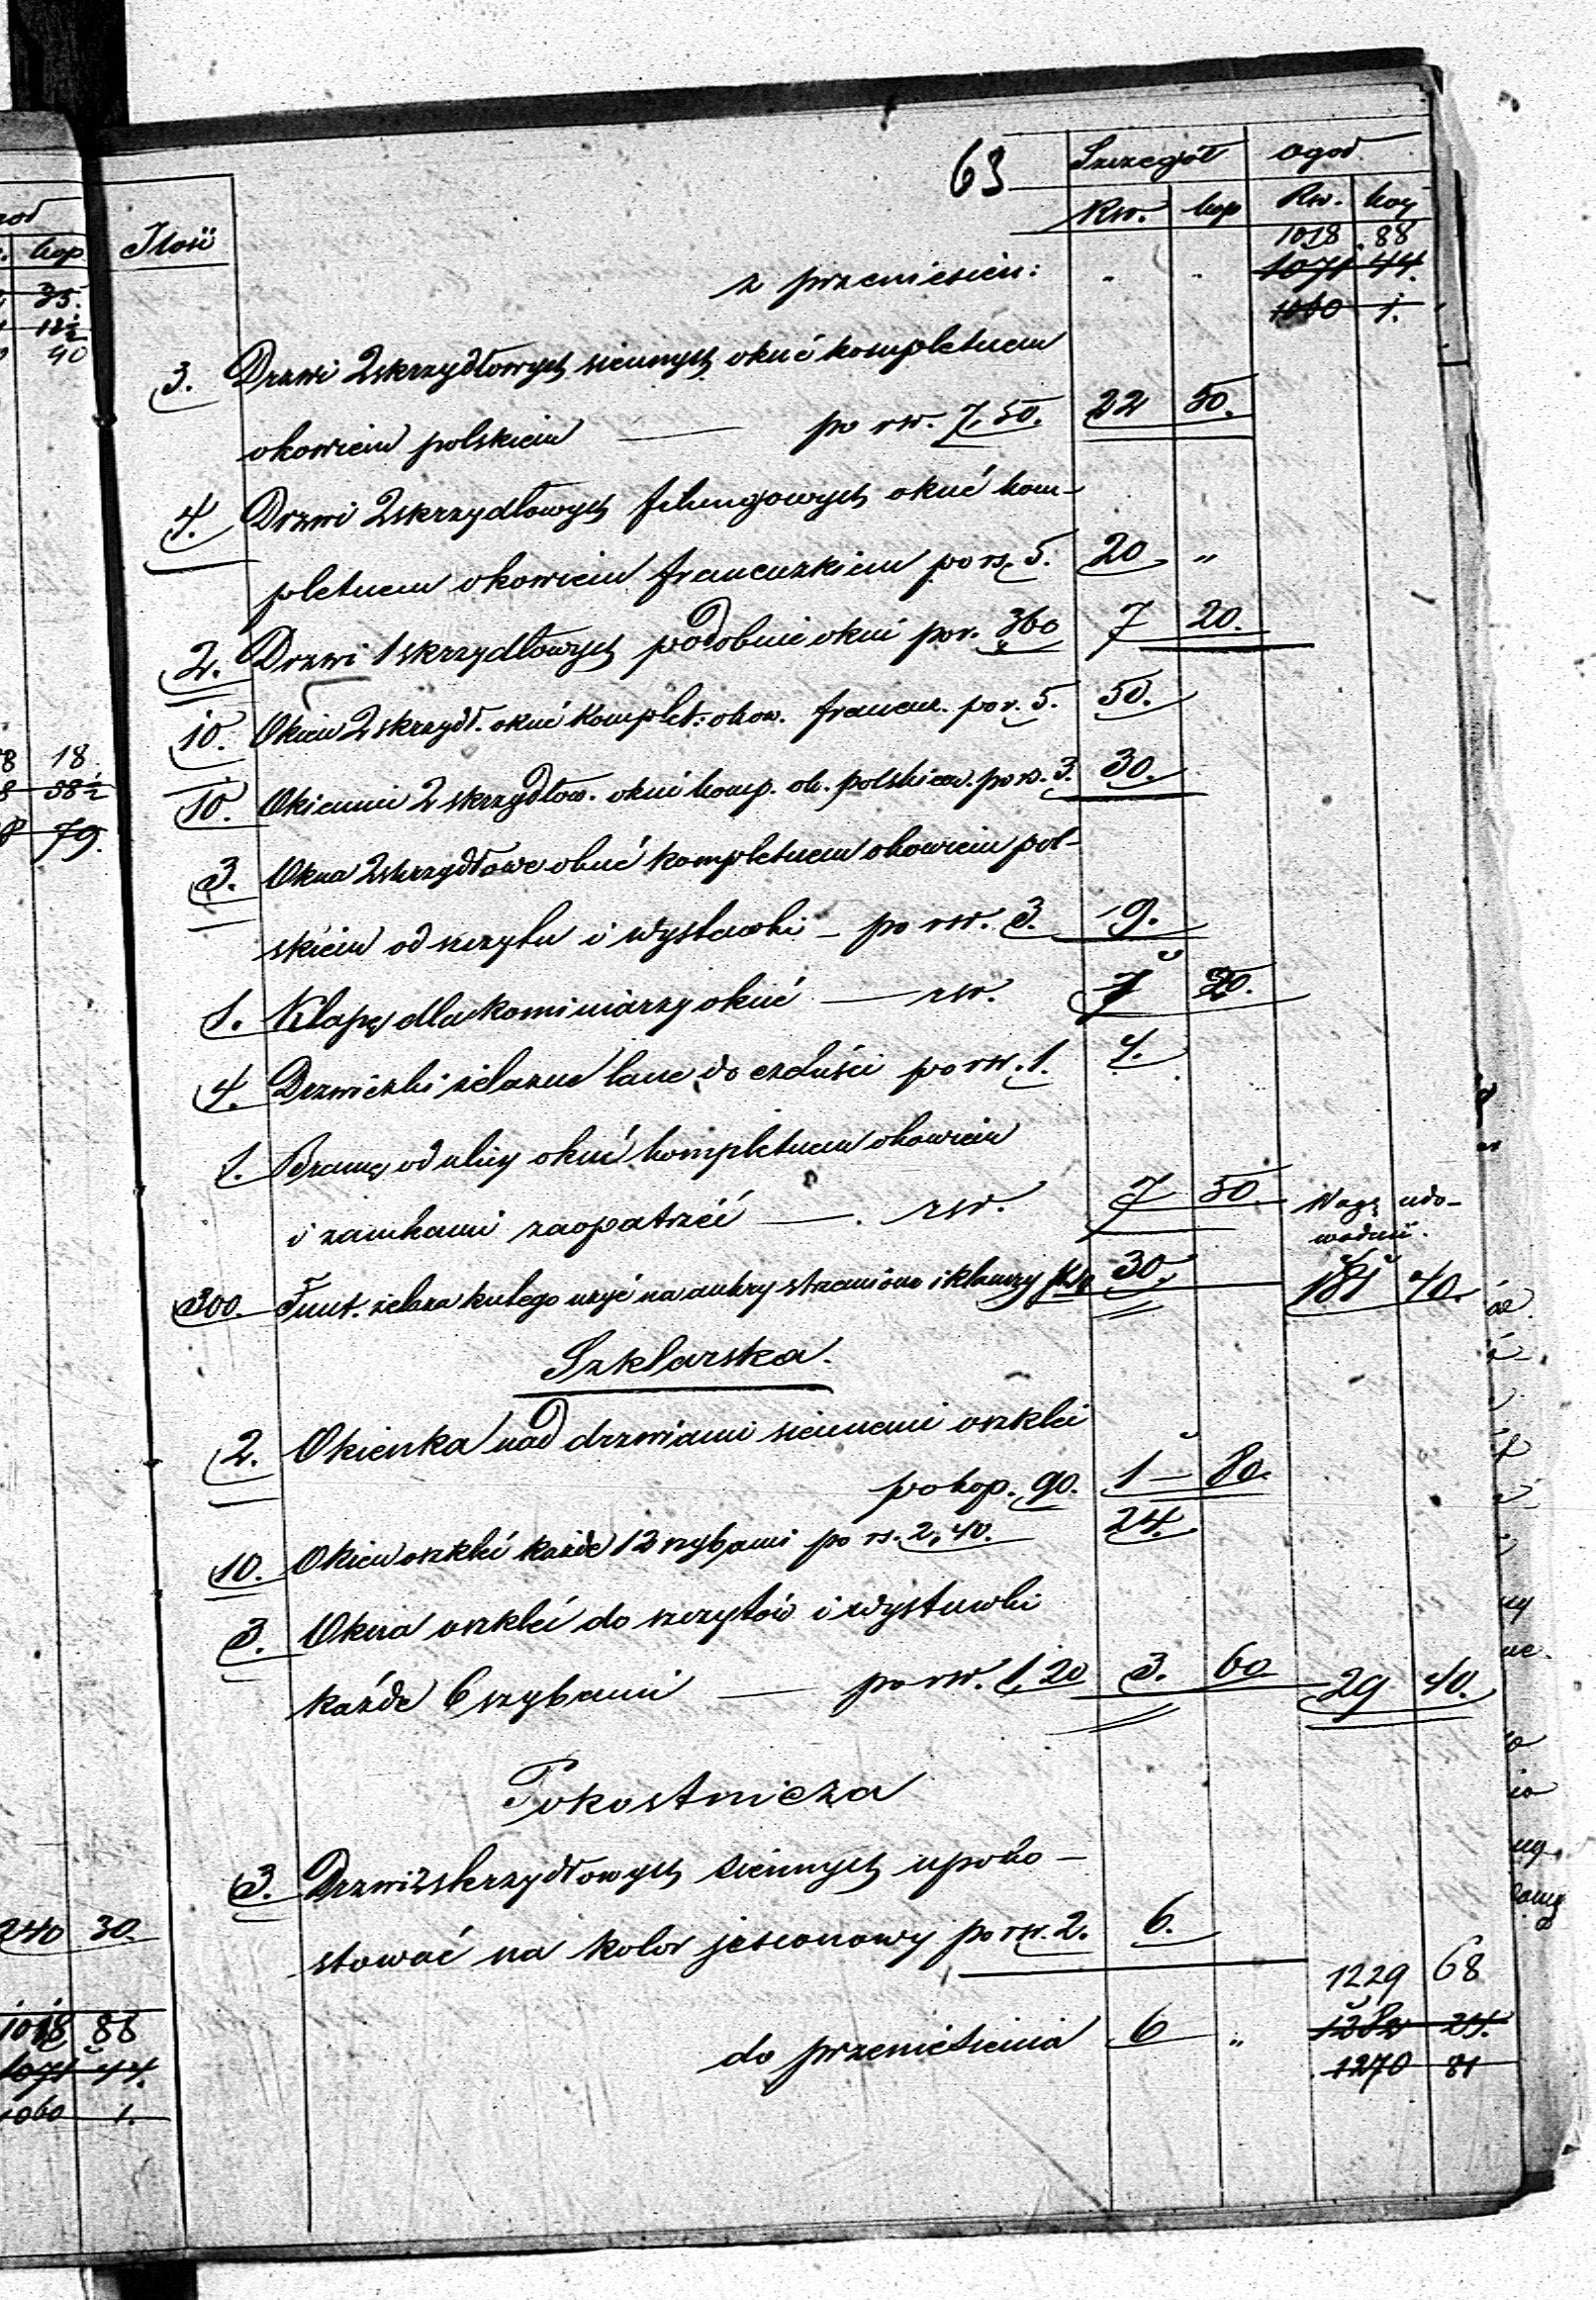 63
Szczegół Ogoł
Ilość Rsr. kop Rsr. kop
1018 88
z przeniesien: 1071 44.
1060 1.
3. Drzwi 2skrzydłowych siennych okuć kompletnem
okowiem polskiem — po rsr. 7,50. 22 50.
4. Drzwi 2skrzydłowych filungowych okuć kom-
pletnem okowiem francuzkiem po rs. 5. 20 "
2. Drzwi 1skrzydłowych podobnie okuć po r. 3 60 7 20.
10. Okien 2skrzydł. okuć komplet: okow. francuz. po r. 5. 50.
10. Okiennic 2skrzydłow. okuć komp. ok. polskiem. po rs. 3. 30.
3. Okna 2skrzydłowe okuć kompletnem okowiem pol-
skiem od szczytu i wystawki — po rsr. 3. 9.
1. Klapę dla kominiarzy okuć — rsr.
4. Drzwiczki żelazne lane do czeluści po rsr. 1. 4.
1. Bramę od ulicy okuć kompletnem okowiem
i zamkami zaopatrzéć — rsr. 7 50 Wagę udo-
wodnić.
300. Funt. żelaza kutego użyć na ankry strzemiona i klamry 30. 181 40.
Szklarska.
2. Okienka nad drzwiami siennemi oszklić
po kop. 90. 1 — 80.
10. Okien oszklić każde 12 szybami po rs. 2,40. 24.
3. Okna oszklić do szczytów i wystawki
każde 6 szybami — po rsr. 1,20 3. 60 29 40.
Pokostnicza
3. Drzwi 2skrzydłowych siennych upoko-
stować na kolor jesionowy po rsr. 2. 6.
1229 68
do przeniesienia 6 " 1282 24.
1270 81
kop
35.
12½
40
18
58½
79.
240 30.
1018 88
1071 44.
1060 1.